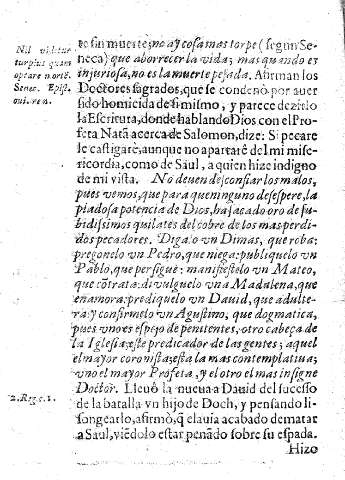 Nil videtur
turpius quam
optare mortẽ.
Senec. Epist.
te sin muerte; no ay cosa mas torpe (segun Se-
neca) que aborrecer la vida; mas quando es
injuriosa, no es la muerte pesada. Afirman los
Doctores sagrados, que se condenò por auer
sido homicida de si mismo, y parece dezirlo
la Escritura, donde hablando Dios con el Pro-
feta Natã acerca de Salomon, dize: Si pecare
le castigarè, aunque no apartarè del mi mise-
ricordia, como de Saul, a quien hize indigno
de mi vista. No deuen desconfiar los malos,
pues vemos, que para que ninguno desespere, la
piadosa potencia de Dios, ha sacado oro de su-
bidissimos quilates del cobre de los mas perdi-
dos pecadores. Digalo vn Dimas, que roba:
pregonelo vn Pedro, que niega: publiquelo vn
Pablo, que persigue; manifiestelo vn Mateo,
que cõtrata: diuulguelo vna Madalena, que
enamora: prediquelo vn Dauid, que adulte-
ra: y confirmelo vn Agustino, que dogmatica,
pues vno es espejo de penitentes, otro cabeça de
la Iglesia: este predicador de las gentes; aquel
el mayor coronista: esta la mas contemplatiua;
vno el mayor Profeta, y el otro el mas insigne
Doctor. Lleuò la nueua a Dauid del sucesso
2. Reg. c. 1.
de la batalla vn hijo de Doch, y pensando li-
songearlo, afirmò, q̃ el auia acabado de matar
a Saul, viẽdolo estar penãdo sobre su espada.
Hizo